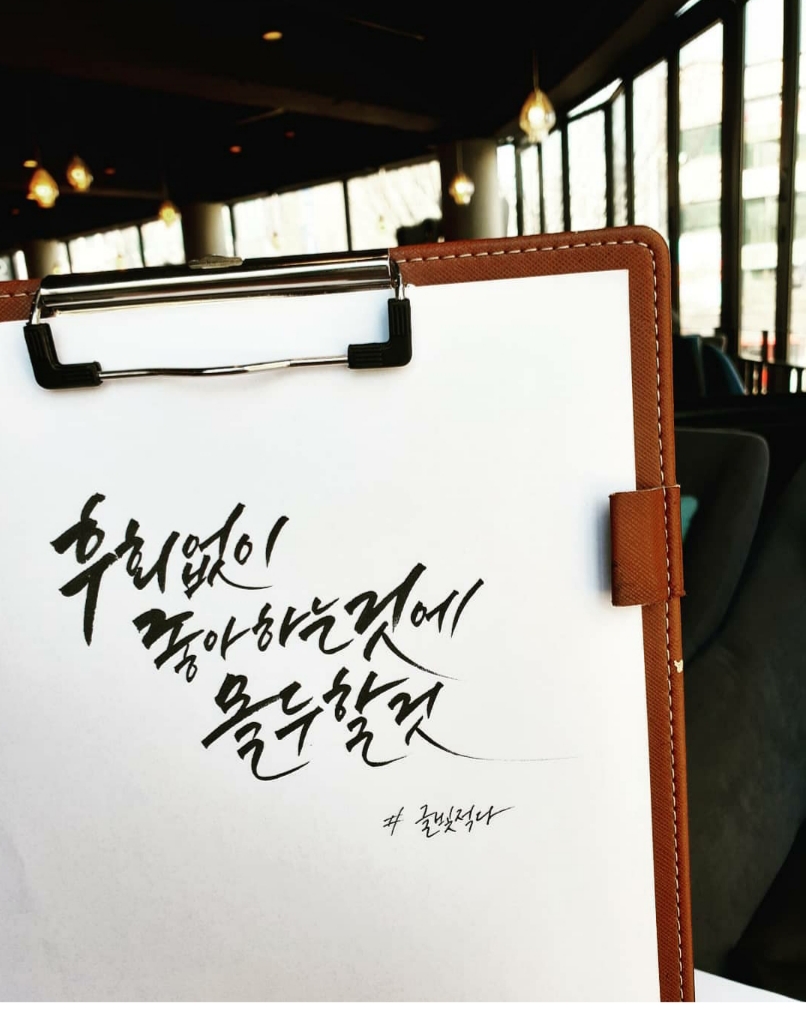 후회없이
좋아하는것에
몰두할것
# 글빛적다